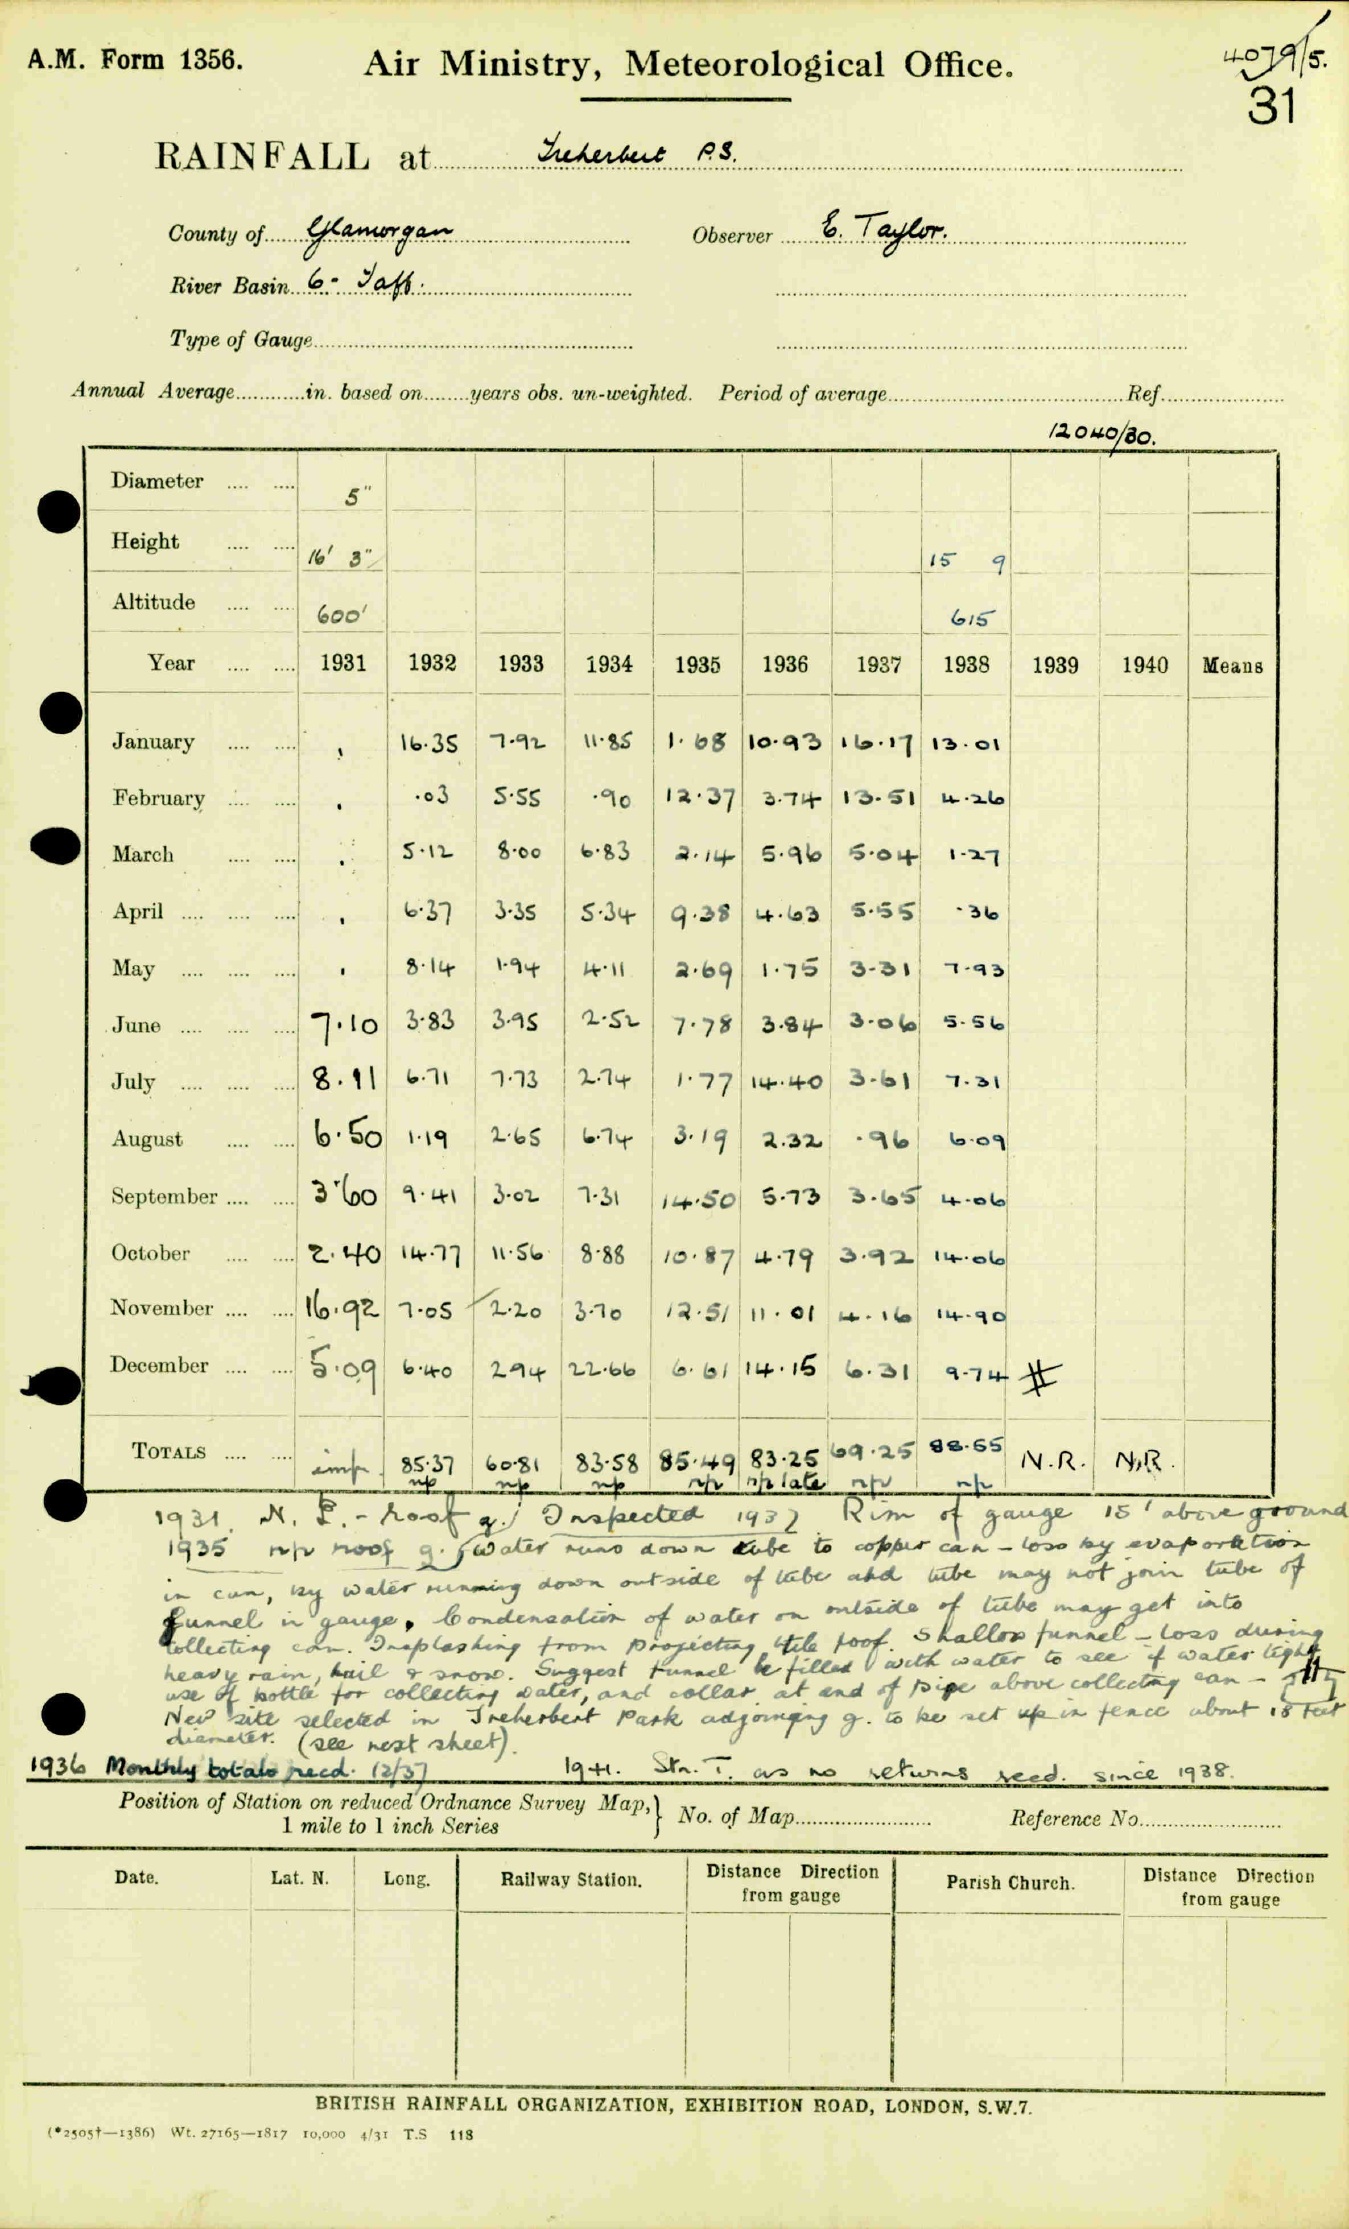 A.M. Form 1356.
Air Ministry, Meteorological Office.
4079/5.
31
RAINFALL at Treherbert P.S.
County of Glamorgan Observer E. Taylor.
River Basin 6 - Taff.
Type of Gauge
Annual Average in. based on years obs. un-weighted. Period of average Ref.
12040/30.
Diameter 5"
Height 16' 3" 15 9
Altitude 600' 615
Year 1931 1932 1933 1934 1935 1936 1937 1938 1939 1940 Means
January 16.35 7.92 11.85 1.68 10.93 16.17 13.01
February .03 5.55 .90 12.37 3.74 13.51 4.26
March 5.12 8.00 6.83 2.14 5.96 5.04 1.27
April 6.37 3.35 5.34 9.38 4.63 5.55 .36
May 8.14 1.94 4.11 2.69 1.75 3.31 7.93
June 7.10 3.83 3.95 2.52 7.78 3.84 3.06 5.56
July 8.91 6.71 7.73 2.74 1.77 14.40 3.61 7.31
August 6.50 1.19 2.65 6.74 3.19 2.32 .96 6.09
September 3.60 9.41 3.02 7.31 14.50 5.73 3.65 4.06
October 2.40 14.77 11.56 8.88 10.87 4.79 3.92 14.06
November 16.92 7.05 2.20 3.70 12.51 11.01 4.16 14.90
December 5.09 6.40 2.94 22.66 6.61 14.15 6.31 9.74 #
TOTALS imp. 85.37 60.81 83.58 85.49 83.25 69.25 88.55 N.R. N.R.
np np np np np late np np
1931. N. P. - Roof g. Inspected 1937 Rim of gauge 15' above ground
1935 np roof g. Water runs down tube to copper can - loss by evaporation
in can, by water running down outside of tube and tube may not join tube of
funnel in gauge. Condensation of water on outside of tube may get into
collecting can. Insplashing from projecting tile roof. Shallow funnel - loss during
heavy rain, hail & snow. Suggest funnel be filled with water to see if water tight
use of bottle for collecting water, and collar at end of pipe above collecting can -
New site selected in Treherbert Park adjoining g. to be set up in fence about 18 feet
diameter. (see next sheet).
1936 Monthly totals recd. 12/37 1941. Stn. T. as no returns recd. since 1938.
Position of Station on reduced Ordnance Survey Map, } No. of Map Reference No.
1 mile to 1 inch Series
Date. Lat. N. Long. Railway Station. Distance Direction Parish Church. Distance Direction
from gauge from gauge
BRITISH RAINFALL ORGANIZATION, EXHIBITION ROAD, LONDON, S.W.7.
(*2505†—1386) Wt. 27165—1817 10,000 4/31 T.S 118